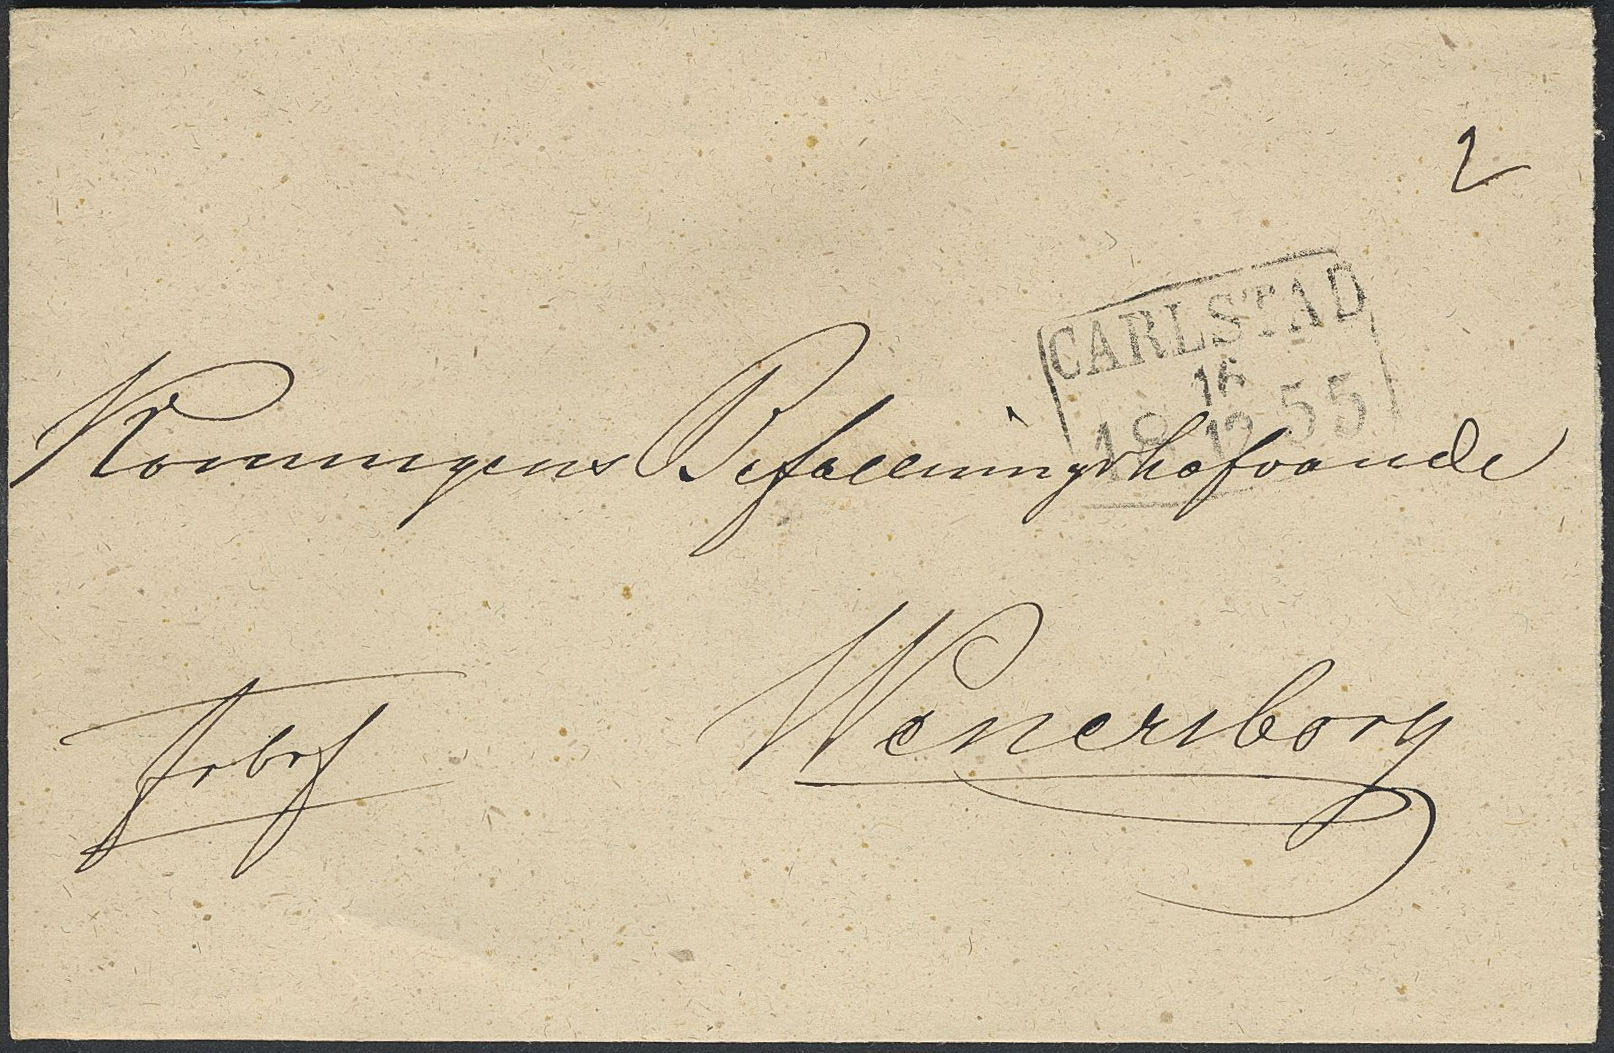 2
CARLSTAD
16
18 12 55
Konungens Befallningshafvande
Wenersborg
Frbrf